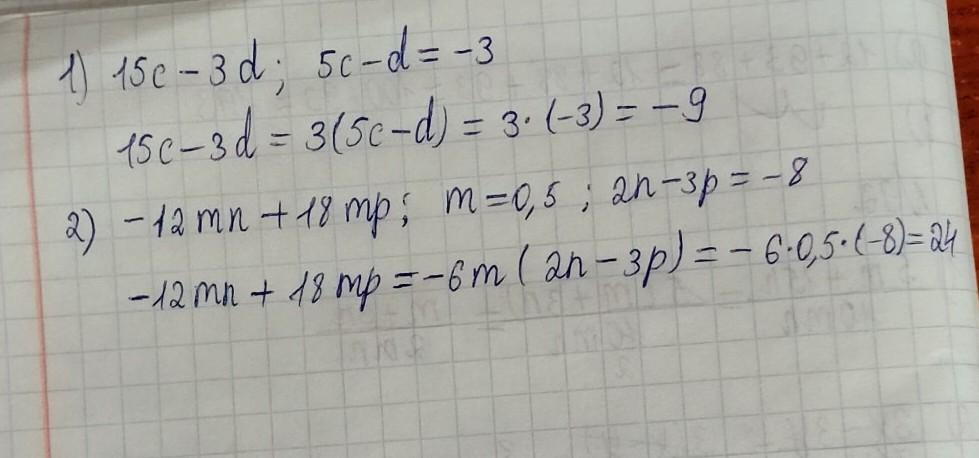 1) 15c - 3d; 5c - d = -3
15c - 3d = 3(5c - d) = 3·(-3) = -9
2) -12mn + 18mp; m = 0,5; 2n - 3p = -8
-12mn + 18mp = -6m(2n - 3p) = -6·0,5·(-8) = 24